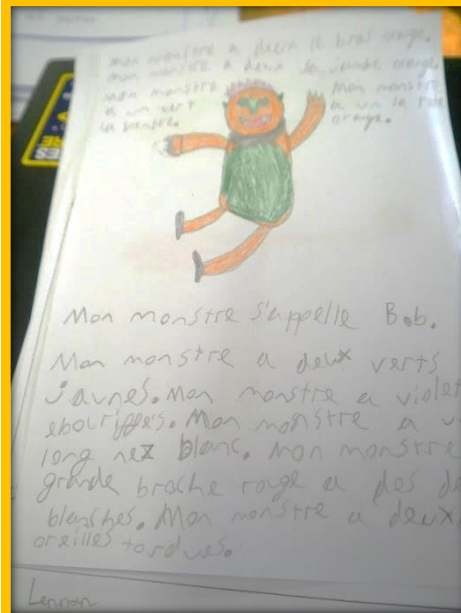 mon monstre a deux le bras orage.
mon monstre a deux la jambe orange.
Mon monstre
a un vert
la
Mon monstre
a un la
orage.
Mon monstre s'appelle Bob.
Mon monstre a deux verts
jaunes. Mon monstre a violet
ebouriffés. Mon monstre a
long nez blanc. mon monstre
grande broche rouge a dos de
blanches. Mon monstre a deux
oreilles tordues.
Lennan